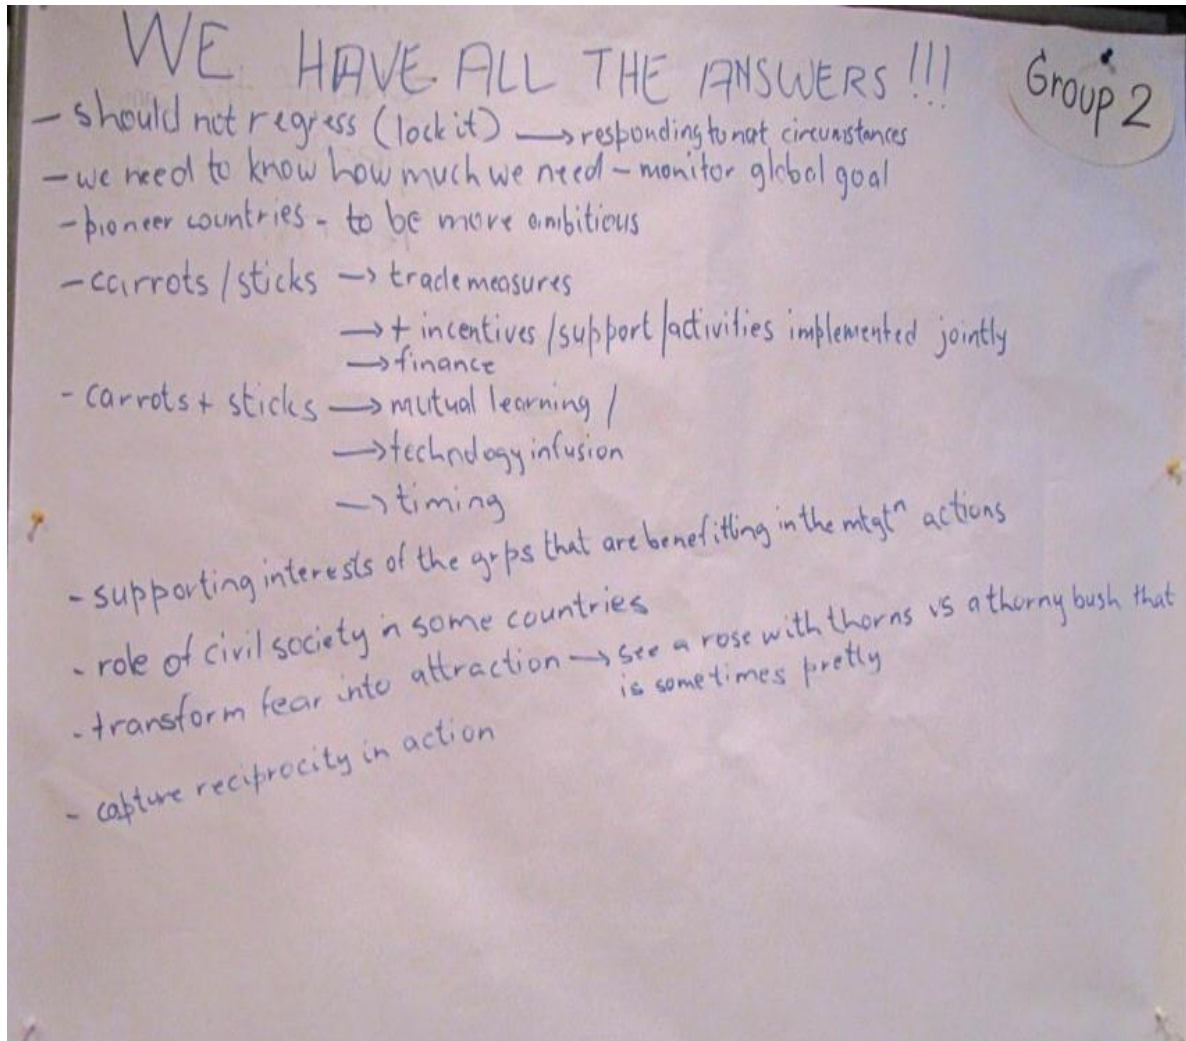 WE HAVE ALL THE ANSWERS!!!
Group 2
- should not regress (lock it) → responding to nat circumstances
- we need to know how much we need - monitor global goal
- pioneer countries - to be more ambitious
- carrots / sticks → trade measures
→ + incentives / support / activities implemented jointly
→ finance
- carrots + sticks → mutual learning /
→ technology infusion
→ timing
- supporting interests of the grps that are benefitting in the mtgtⁿ actions
- role of civil society in some countries
- transform fear into attraction → see a rose with thorns vs a thorny bush that
is sometimes pretty
- capture reciprocity in action